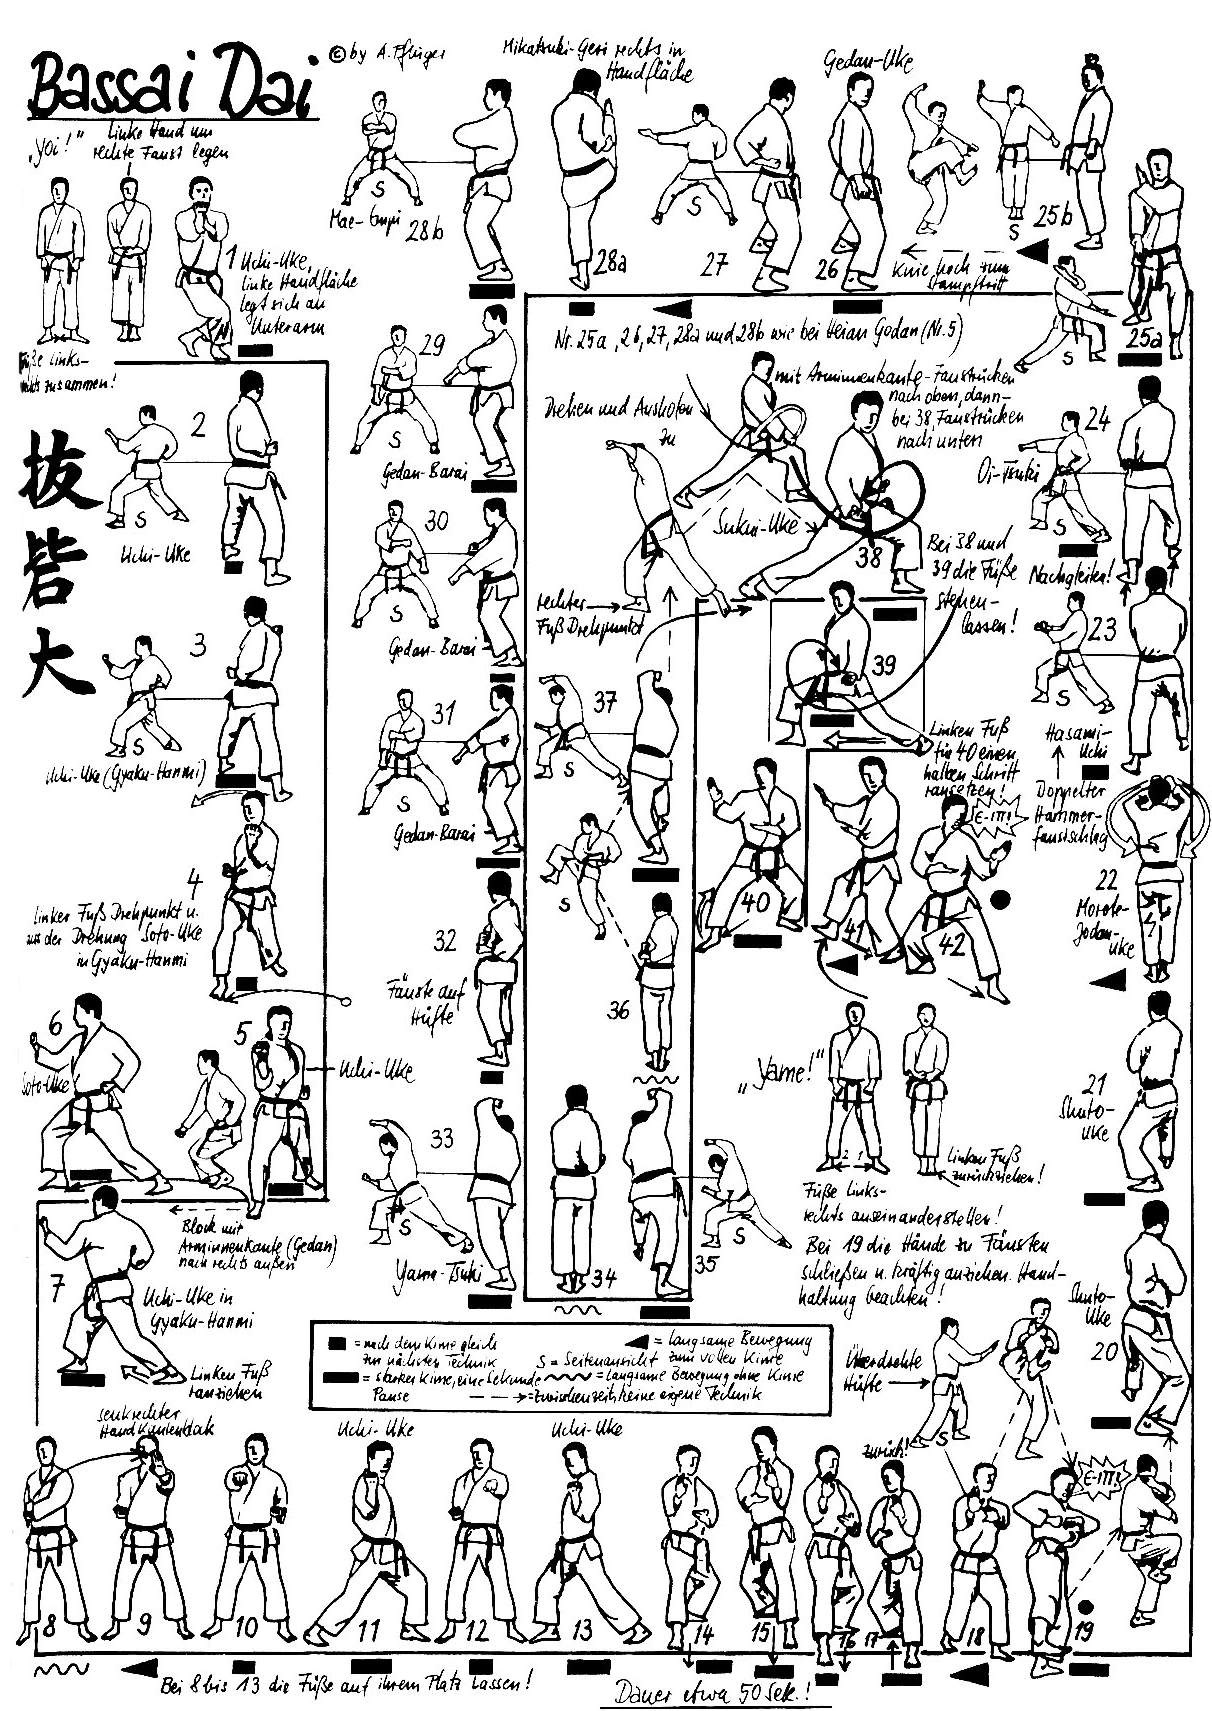 Bassai Dai
© by A. Pflüger
„Yoi!"
linke Hand um
rechte Faust legen
Füße links-
rechts zusammen!
1
Uchi-Uke,
linke Handfläche
legt sich an
Unterarm
抜
砦
大
2
S
Uchi-Uke
3
S
Uchi-Uke (Gyaku-Hanmi)
4
linker Fuß Drehpunkt u.
aus der Drehung Soto-Uke
in Gyaku-Hanmi
5
Uchi-Uke
6
Soto-Uke
Block mit
Arminnenkante (Gedan)
nach rechts außen
7
Uchi-Uke in
Gyaku-Hanmi
Linken Fuß
ranziehen
senkrechter
Handkantenblock
8
9
10
Uchi-Uke
11
12
Uchi-Uke
13
14
15
16
zurück!
17
18
E-ITT!
19
Bei 8 bis 13 die Füße auf ihrem Platz lassen!
Dauer etwa 50 Sek.!
Überdrehte
Hüfte
S
Shuto-
Uke
20
21
Shuto-
Uke
22
Morote-
Jodan-
Uke
Hasami-
Uchi
Doppelter
Hammer-
faustschlag
23
S
24
S
Oi-Tsuki
Nachgleiten!
25a
S
25b
S
Knie hoch zum
Stampftritt
Gedan-Uke
26
27
S
Mikatsuki-Geri rechts in
Handfläche
28a
28b
S
Mae-Empi
Nr. 25a, 26, 27, 28a und 28b wie bei Heian Godan (Nr. 5)
29
S
Gedan-Barai
30
S
Gedan-Barai
31
S
Gedan-Barai
32
Fäuste auf
Hüfte
33
S
Yama-Tsuki
34
35
S
36
S
37
S
rechter
Fuß Drehpunkt
Drehen und Ausholen
zu
mit Arminnenkante-Faustrücken
nach oben, dann
bei 38, Faustrücken
nach unten
Sukui-Uke
38
Bei 38 und
39 die Füße
stehen-
lassen!
39
Linken Fuß
für 40 einen
halben Schritt
ransetzen!
40
41
E-ITT!
42
„Yame!"
2 1
Linken Fuß
zurückziehen!
Füße links-
rechts auseinanderstellen!
Bei 19 die Hände zu Fäusten
schließen u. kräftig anziehen. Hand-
haltung beachten!
= nach dem Kime gleich
zur nächsten Technik
= starker Kime, eine Sekunde
Pause
= langsame Bewegung
zum vollen Kime
S = Seitenansicht
= langsame Bewegung ohne Kime
= Zwischenzeit, keine eigene Technik